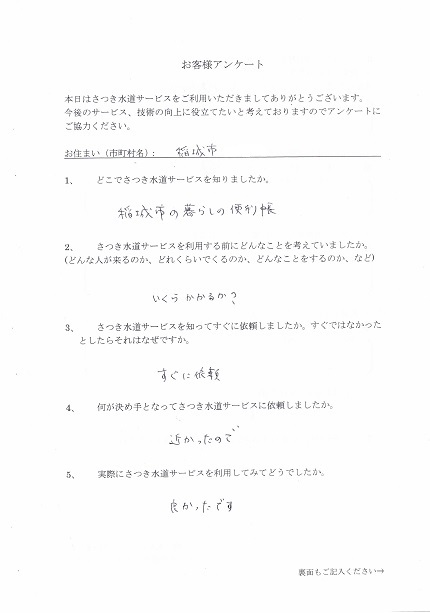 お客様アンケート
本日はさつき水道サービスをご利用いただきましてありがとうございます。
今後のサービス、技術の向上に役立てたいと考えておりますのでアンケートに
ご協力ください。
お住まい（市町村名）： 稲城市
1、 どこでさつき水道サービスを知りましたか。
稲城市の暮らしの便利帳
2、 さつき水道サービスを利用する前にどんなことを考えていましたか。
(どんな人が来るのか、どれくらいでくるのか、どんなことをするのか、など)
いくらかかるか?
3、 さつき水道サービスを知ってすぐに依頼しましたか。すぐではなかった
としたらそれはなぜですか。
すぐに依頼
4、 何が決め手となってさつき水道サービスに依頼しましたか。
近かったので
5、 実際にさつき水道サービスを利用してみてどうでしたか。
良かったです
裏面もご記入ください⇒